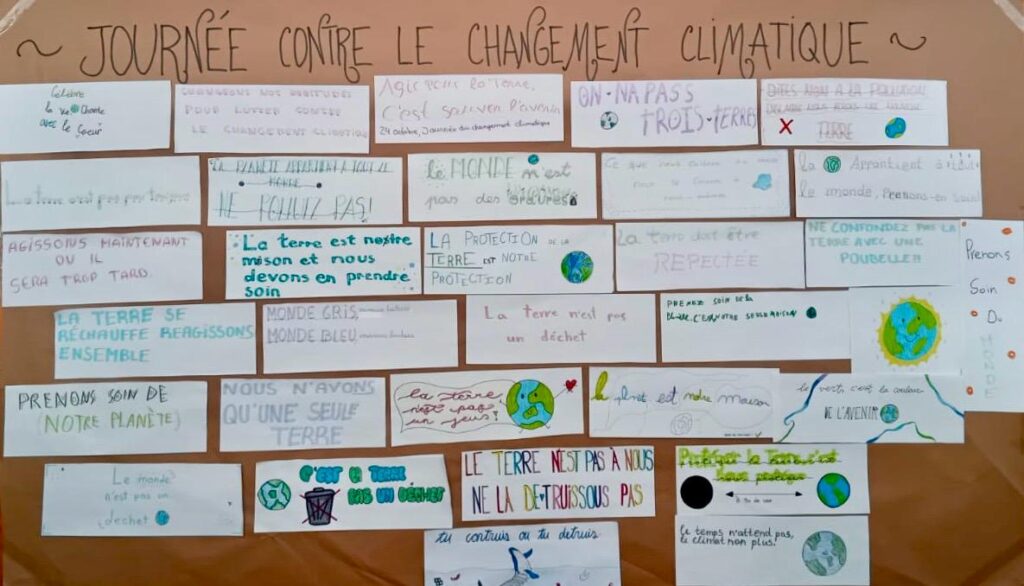 ~ JOURNÉE CONTRE LE CHANGEMENT CLIMATIQUE ~
Célèbre
la
avec le Coeur
CHANGEONS NOS HABITUDES
POUR LUTTER CONTRE
LE CHANGEMENT CLIMATIQUE
Agir pour la terre,
C'est sauver l'avenir
24 octobre, Journée du changement climatique
ON NA PASS
TROIS TERRES
DITES NON A LA POLLUTION
TERRE
La terre est pas
LA PLANÈTE APPARTIENT À TOUT LE
MONDE
NE POLLUEZ PAS!
le MONDE n'est
pas des ordures
Ce que nous
La Appartient à tout
le monde, Prenons-en soin!
AGISSONS MAINTENANT
OU IL
SERA TROP TARD.
La terre est nostre
mison et nous
devons en prendre
soin
LA PROTECTION DE LA
TERRE EST NOTRE
PROTECTION
La terre doit être
REPECTÉE
NE CONFONDEZ PAS LA
TERRE AVEC UNE
POUBELLE!!
Prenons
Soin
Du
MONDE
LA TERRE SE
RÉCHAUFFE REAGISSONS
ENSEMBLE
MONDE GRIS,
MONDE BLEU,
La terre n'est pas
un déchet
PRENEZ SOIN DE LA
PRENONS SOIN DE
(NOTRE PLANÈTE)
NOUS N'AVONS
QU'UNE SEULE
TERRE
la terre
n'est pas
un jeus!
la planet est notre maison
le vert, c'est la couleur
DE L'AVENIR
Le monde
n'est pas un
dechet
C'EST LA TERRE
PAS UN DÉCHET
LE TERRE N'EST PAS À NOUS
NE LA DETRUISSOUS PAS
Protéger la Terre c'est
Nous protéger
le temps n'attend pas,
le climat non plus!
tu contruis ou tu detruis